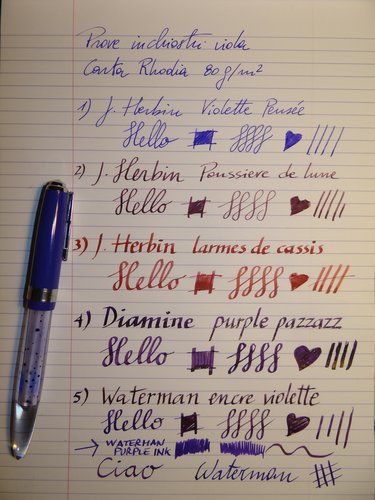 Prove inchiostri viola
Carta Rhodia 80 g/m²
1) J. Herbin Violette Pensée
Hello
2) J. Herbin Poussiere de lune
Hello
3) J. Herbin larmes de cassis
Hello
4) Diamine purple pazzazz
Hello
5) Waterman encre violette
Hello
→ WATERMAN
PURPLE INK
Ciao Waterman